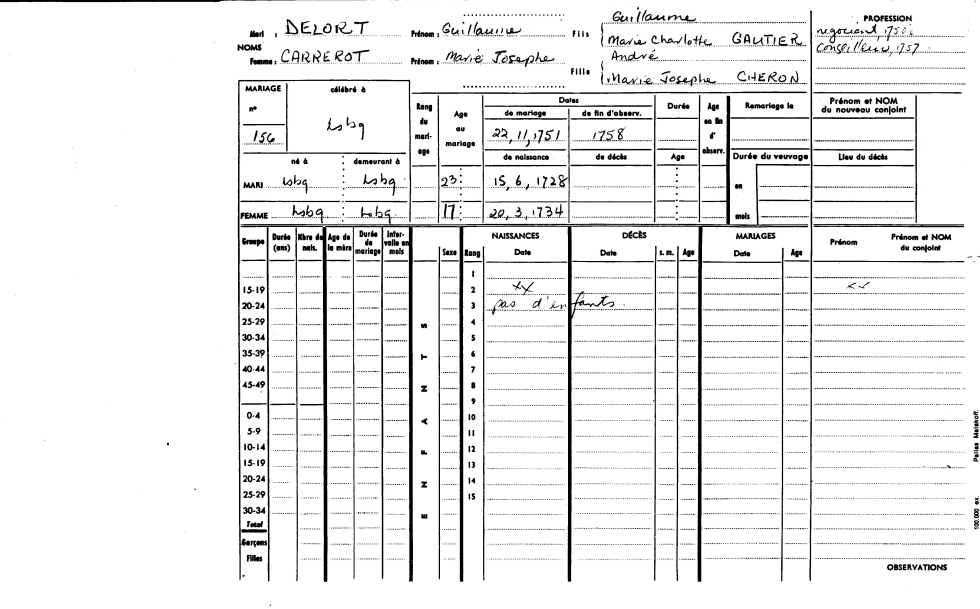 Mari : DELORT Prénom : Guillaume Fils Guillaume
Marie Charlotte GAUTIER
NOMS
Femme : CARREROT Prénom : Marie Josephe Fille André
Marie Josephe CHERON
PROFESSION
negociant, 1750
Conseilleur, 1757
MARIAGE célébré à
n° 156 Lsbg
né à demeurant à
MARI Lsbg Lsbg
FEMME Lsbg Lsbg
Rang du mariage Age au mariage
23
17
Dates
de mariage de fin d'observ.
22, 11, 1751 1758
de naissance de décès
15, 6, 1728
20, 3, 1734
Durée Age en fin d'observ.
Age
Remariage le
Durée du veuvage
en
mois
Prénom et NOM du nouveau conjoint
Lieu du décès
Groupe Durée (ans) Nbre de nais. Age de la mère Durée de mariage Intervalle en mois Sexe Rang NAISSANCES Date DÉCÈS Date s. m. Age MARIAGES Date Age Prénom Prénom et NOM du conjoint
1
15-19 2 xx xx
20-24 3 pas d'enfants.
25-29 4
30-34 5
35-39 6
40-44 7
45-49 8
9
0-4 10
5-9 11
10-14 12
15-19 13
20-24 14
25-29 15
30-34
Total
Garçons
Filles
ENFANTS
OBSERVATIONS
100.000 ex. Pailles Malakoff.